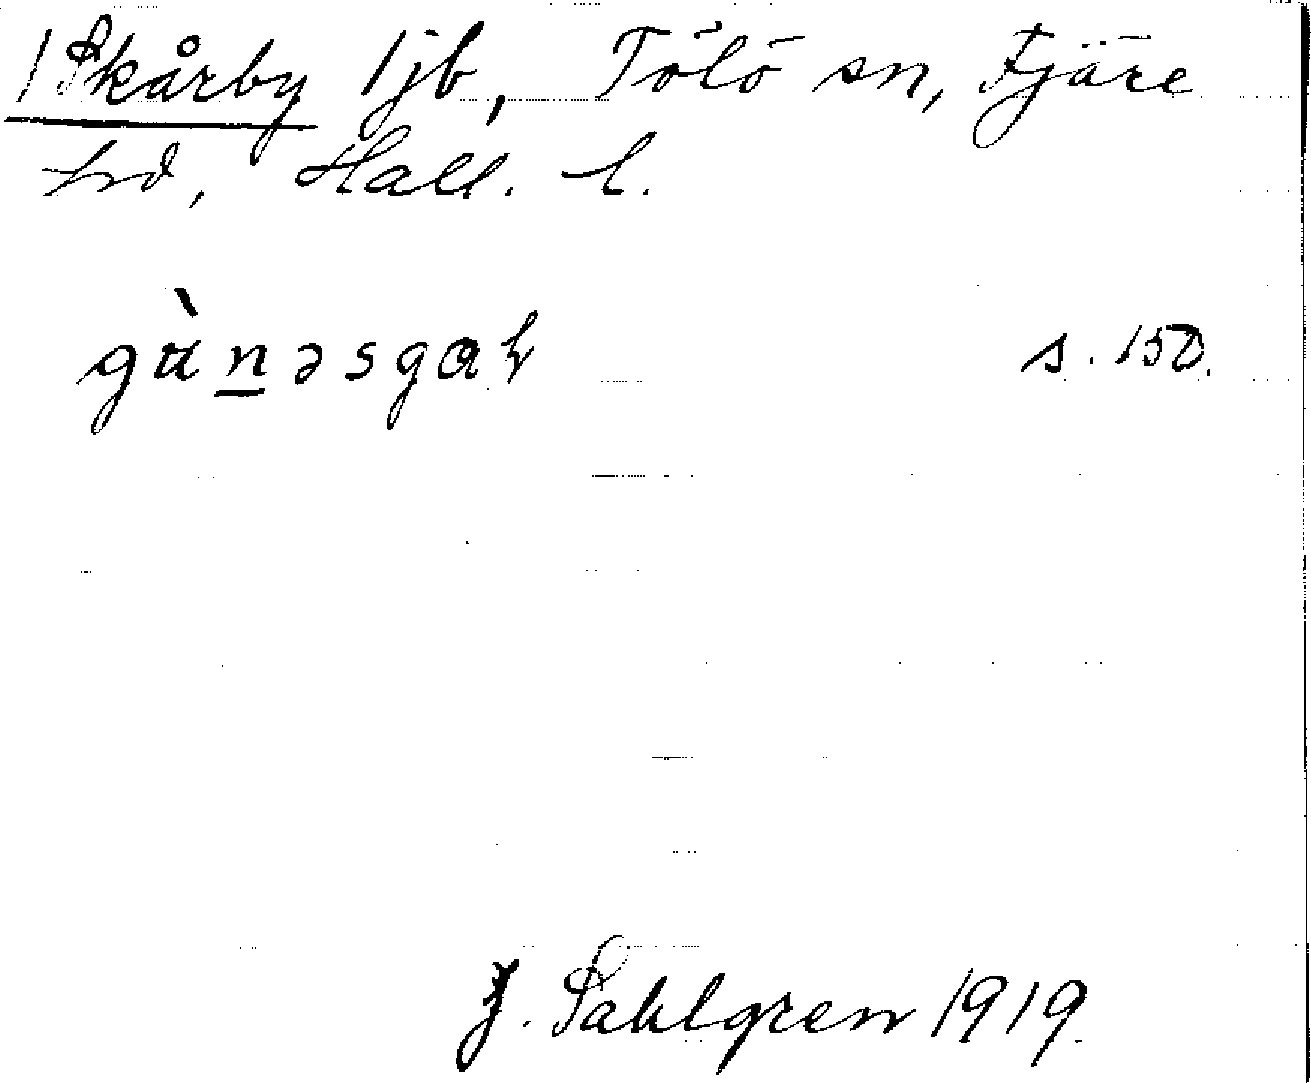 Skårby ljb, Tölö sn, Fjäre
hd, Hall. l.
gùn̲əsgaʀ s. 150.
J. Sahlgren 1919.